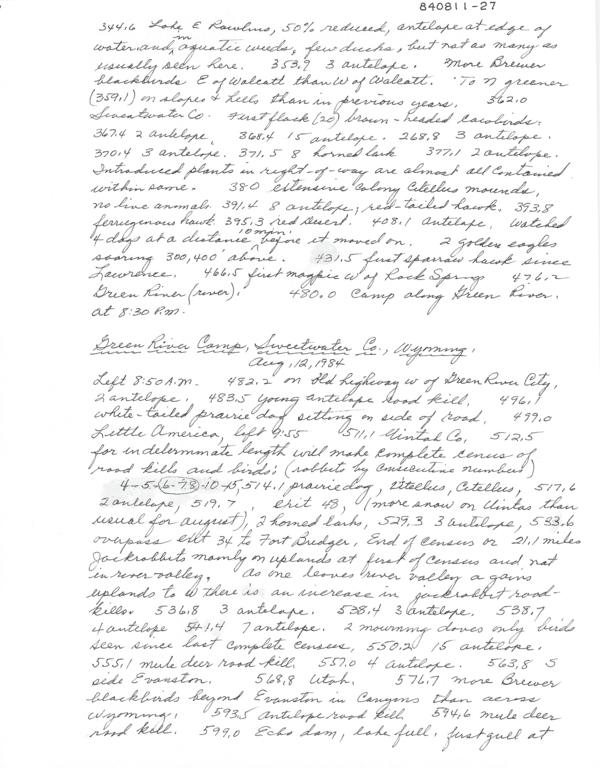 840811-27
344.6 Lake E Rawlins, 50% reduced, antelope at edge of
water and in aquatic weeds, few ducks, but not as many as
usually seen here. 353.7 3 antelope. More Brewer
blackbirds E of Walcott than W of Walcott. To N greener
(359.1) on slopes & hills than in previous years. 362.0
Sweetwater Co. First flock (20) brown-headed cowbirds.
367.4 2 antelope, 368.4 15 antelope. 268.8 3 antelope.
370.4 3 antelope. 371.5 8 horned lark 377.1 2 antelope.
Introduced plants in right-of-way are almost all contained
within same. 380 extensive colony Citellus mounds,
no live animals. 391.4 8 antelope; red-tailed hawk. 393.8
ferrugenous hawk 395.3 red desert. 408.1 antelope, watched
4 dogs at a distance 10 min. before it moved on. 2 golden eagles
soaring 300,400' above. 431.5 first sparrow hawk since
Lawrence. 466.5 first magpie W of Rock Springs 476.2
Green River (river). 480.0 Camp along Green River.
at 8:30 P.M.
Green River Camp, Sweetwater Co., Wyoming,
Aug. 12, 1984
Left 8:50 A.M. 482.2 on old highway W of Green River City,
2 antelope, 483.5 young antelope road kill, 496.1
white-tailed prairie dog sitting on side of road, 499.0
Little America, left 9:55 511.1 Uintah Co. 512.5
for indeterminate length will make complete census of
road kills and birds: (rabbits by consecutive numbers)
4-5-(6-78)-10-15, 514.1 prairie dog, Citellus, Citellus, 517.6
2 antelope, 519.7, exit 48, (more snow on Uintas than
usual for august), 2 horned larks, 529.3 3 antelope, 533.6
overpass exit 34 to Fort Bridger, End of census or 21.1 miles
Jackrabbits mainly on uplands at first of census and not
in river valley. As one leaves river valley & gains
uplands to W there is an increase in jackrabbit road-
kills. 536.8 3 antelope. 538.4 3 antelope. 538.7
4 antelope 541.4 7 antelope. 2 mourning doves only birds
seen since last complete census, 550.2 15 antelope.
555.1 mule deer road kill. 557.0 4 antelope. 563.8 S
side Evanston. 568.8 Utah. 576.7 more Brewer
blackbirds beyond Evanston in Canyons than across
Wyoming. 593.5 antelope road kill. 594.6 mule deer
road kill. 599.0 Echo dam, lake full, first gull at